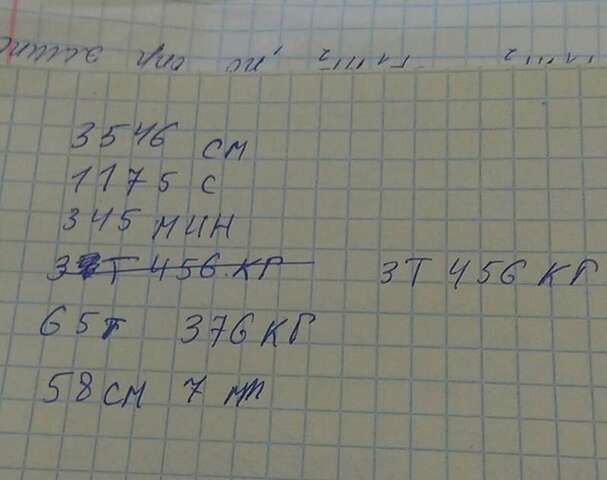 3546 см
1175 с
345 мин
3т 456 кг 3т 456 кг
65т 376 кг
58 см 7 мм